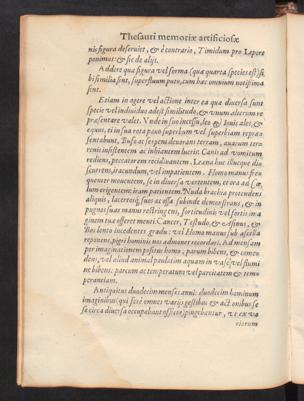 Thesauri memoriæ artificiosæ
nis figura deseruiet, & è contrario, Timidum pro Lepore
ponimus: & sic de alijs.
Addere qua figura vel forma (quæ quarta species est) si-
bi similia sint, superfluum puto, cum hæc omnium notissima
sint.
Etiam in agere vel actione inter ea quæ diuersa sunt
specie vel indiuiduo adest similitudo, & vnum alterum re-
præsentare valet. Vnde in suo incessu, leo & Iouis ales, &
equus, et in sua rota pauo superbum vel superbiam repræ-
sentabunt, Bufo ac serpens deuorans terram, auarum terre-
nis insistentem ac inhiantem lucris: Canis ad vomitum
rediens, peccatorem recidiuantem. Leæna huc illucque dis-
currens, iracundum, vel impatientem. Homo manus fre-
quenter mouentem, si in diuersa vertentem, et ora ad Cæ-
lum erigentem: iram patientem. Nuda brachia protendens
aliquis, lacertosq; suos ac ossa subinde demonstrans, & in
pugnos suas manus restringens, fortitudinis vel fortis ima-
ginem tua offeret menti. Cancer, Testudo, & Asinus, &
Bos lento incedentes gradu: vel Homo manus sub ascella
reponens, pigri hominis nos admonet recordari. Ad mensam
per imaginationem positus homo, parum bibens, & come-
dens, vel aliud animal paulatim aquam in vase vel flumi-
ne bibens: parcum ac temperatum vel parcitatem & tem-
perantiam.
Antiquitus duodecim menses anni: duodecim hominum
imaginibus (qui ferè omnes varijs gestibus & actionibus se-
se circa diuersa occupabant officia) pingebantur, vt ex va-
riorum